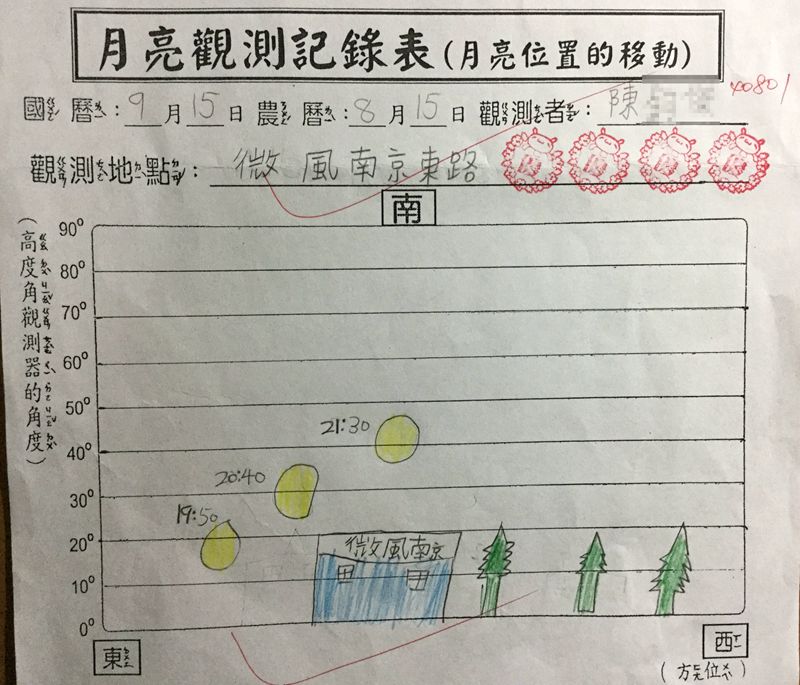 月亮觀測記錄表(月亮位置的移動)
國曆:9月15日 農曆:8月15日 觀測者:陳 40801
觀測地點:微風南京東路
南
(高度角觀測器的角度)
90°
80°
70°
60°
50°
40°
30°
20°
10°
0°
21:30
20:40
19:50
微風南京
東
西
(方位)